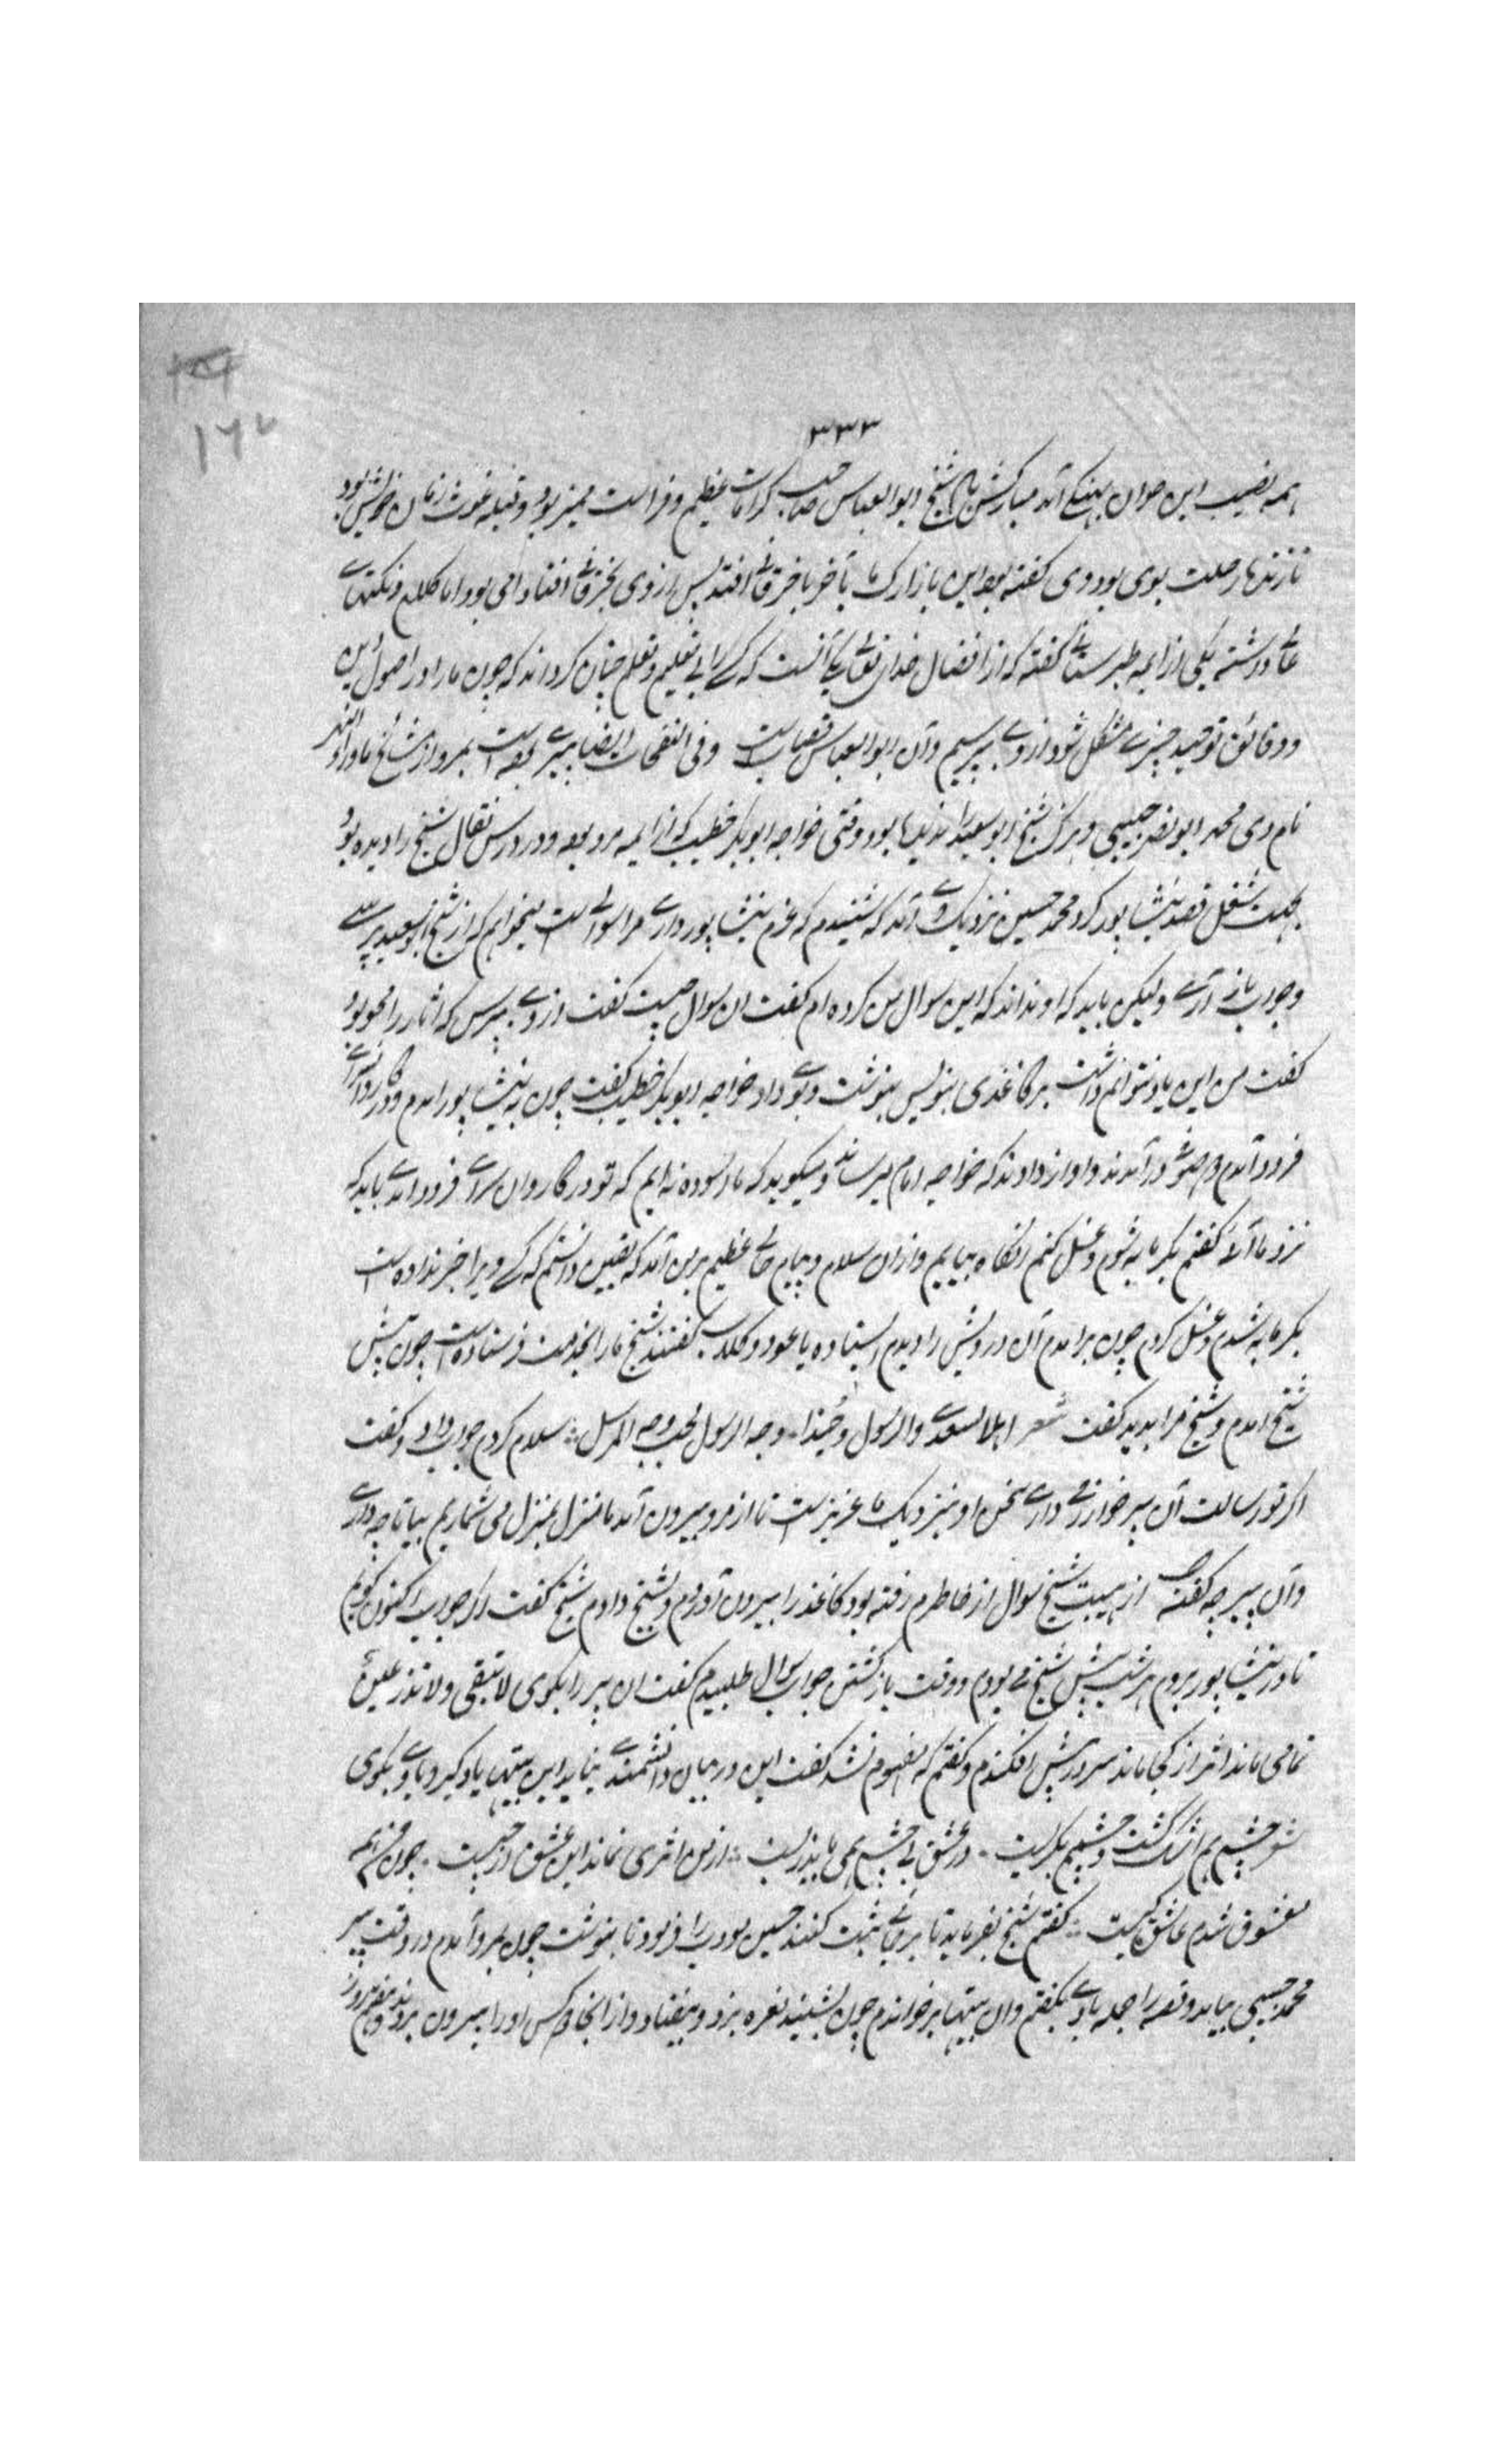 ۳۳۳
۱۶۷
همه نصیب این جوان مهنگی آمد مبارکش باد شیخ ابوالعباس صاحب کرامات عظیم و فراست ممیز بود و قبله غوث زمان خویش بود
رحلت بوی بود وی گفته بود این بازارک ما بآخر با خرقانی افتد پس از وی بخرقانی افتاد امی بود اما کلام و نکتهاے
عالی داشته یکی از ایمه طبرستان گفته که از افضال خدای تعالی یکی آنست که کسے را بی تعلیم و تعلم چنان گرداند که چون ما را در اصول دین
و دقائق توحید چیزے مشکل شود از وے بپرسیم و آن ابوالعباس قصاب است وفی النفحات ایضا پیرے بوده است بمرو از مشایخ ماوراءالنهر
نام وی محمد ابونصر حبیبی و هرگز شیخ ابوسعید را ندیده بود وقتی خواجه ابوبکر خطیب که از ایمه مرو بود و در درس قفال شیخ را دیده بود
بجهت شغلی قصد نیشاپور کرد محمد حسین نزدیک وے آمد که شنیدم که عزم نیشاپور دارے مرا سوالے است میخواهم که از شیخ ابوسعید پرسے
و جواب باز آرے ولیکن باید که او نداند که این سوال من کرده ام گفت ان سوال چیست گفت از وے بپرس که آثار را محو بود
گفت من این یاد نتوانم داشت بر کاغذی بنویس بنوشت و بوے داد خواجه ابوبکر خطیب گفت چون به نیشاپور امدم و در کاروانسراے
فرود آمدم دو صوفی در آمدند و اواز دادند که خواجه امام میرساند و میگوید که ما اسوده نه ایم که تو در کاروان سراے فرود امدے باید که
نزد ما آئی گفتم بگرمابه شوم و غسل کنم انگاه بیایم و ازان سلام و پیام حالے عظیم بر من آمد که یقین دانستم که کسے ویرا خبر نداده است
بگرمابه شدم و غسل کردم چون برامدم آن درویش را دیدم ایستاده با عود و گلاب گفتند شیخ ما را بخدمت فرستاده است چون پیش
شیخ امدم و شیخ مرا بدید گفت شعر اهلا بسعدی والرسول و حبذا - وجه الرسول لحب وجه المرسل سلام کردم جواب داد و گفت
اگر تو رسالت آن پیر خوار دارے سخن او بنزدیک ما عزیز است تا از مرو بیرون آمده ما منزل بمنزل می شماریم بیا تا چه دارے
و آن پیر چه گفته از هیبت شیخ سوال از خاطرم رفته بود کاغذ را بیرون آوردم و بشیخ دادم شیخ گفت اگر جواب اکنون گویم
تا در نیشاپور بودم هر شب پیش شیخ مے بودم و وقت بازگشتن جواب سوال طلبیدم گفت ان پیر را بگوی لا تبقی ولا تذر عین
نمامی ماند اثر از کجا ماند سر در پیش افکندم و گفتم که مفهوم نشد گفت این در بیان دانشمندے نیاید این بیتها یاد گیر و باوے بگوی
شعر جسم همه اشک گشت و چشمم بگریست - در عشق تو بے چشم همی باید زیست - از من اثری نماند این عشق از چیست - چون من همه
معشوق شدم عاشق کیست گفتم شیخ بفرماید تا بر جائے ثبت کنند حسین مودب را فرمود تا بنوشت چون بمرو آمدم در وقت پیر
محمد حبیبی بیامد و قصه را جمله باوے بگفتم و ان بیتها برخواندم چون بشنید نعره بزد و بیفتاد و از انجا دو کس او را بیرون بردند و هفتم روز